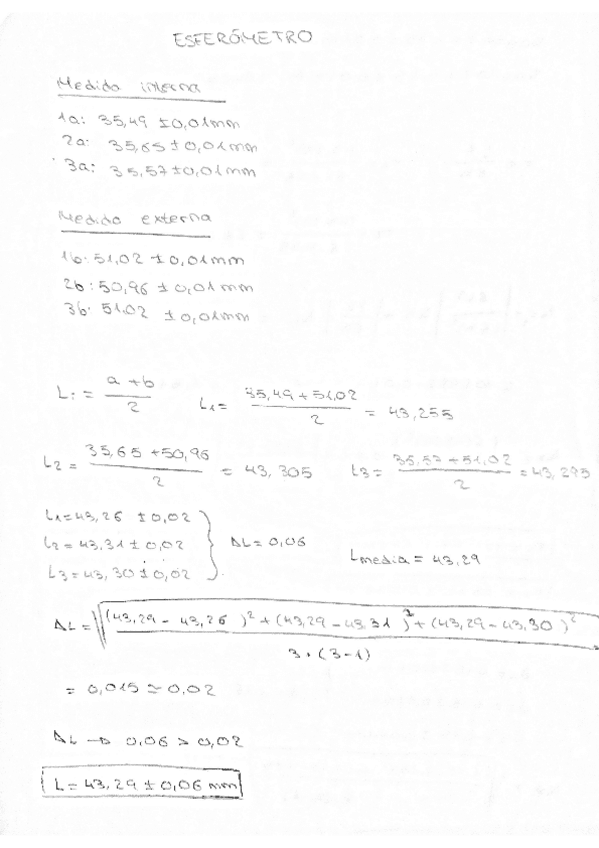 ESFERÓMETRO
Medida interna
1a: 35,49 ±0,01mm
2a: 35,65 ±0,01mm
3a: 35,57 ±0,01mm
Medida externa
1b: 51,02 ±0,01mm
2b: 50,96 ±0,01mm
3b: 51,02 ±0,01mm
Li = (a+b)/2 L1 = (35,49+51,02)/2 = 43,255
L2 = (35,65+50,96)/2 = 43,305 L3 = (35,57+51,02)/2 = 43,295
L1=43,26 ±0,02
L2=43,31±0,02 } ΔL=0,06 Lmedia = 43,29
L3=43,30±0,02
ΔL = √((43,29 - 43,26)²+(43,29-43,31)²+(43,29-43,30)²)/(3·(3-1))
= 0,015 ≃ 0,02
ΔL → 0,06 > 0,02
L=43,29 ±0,06 mm